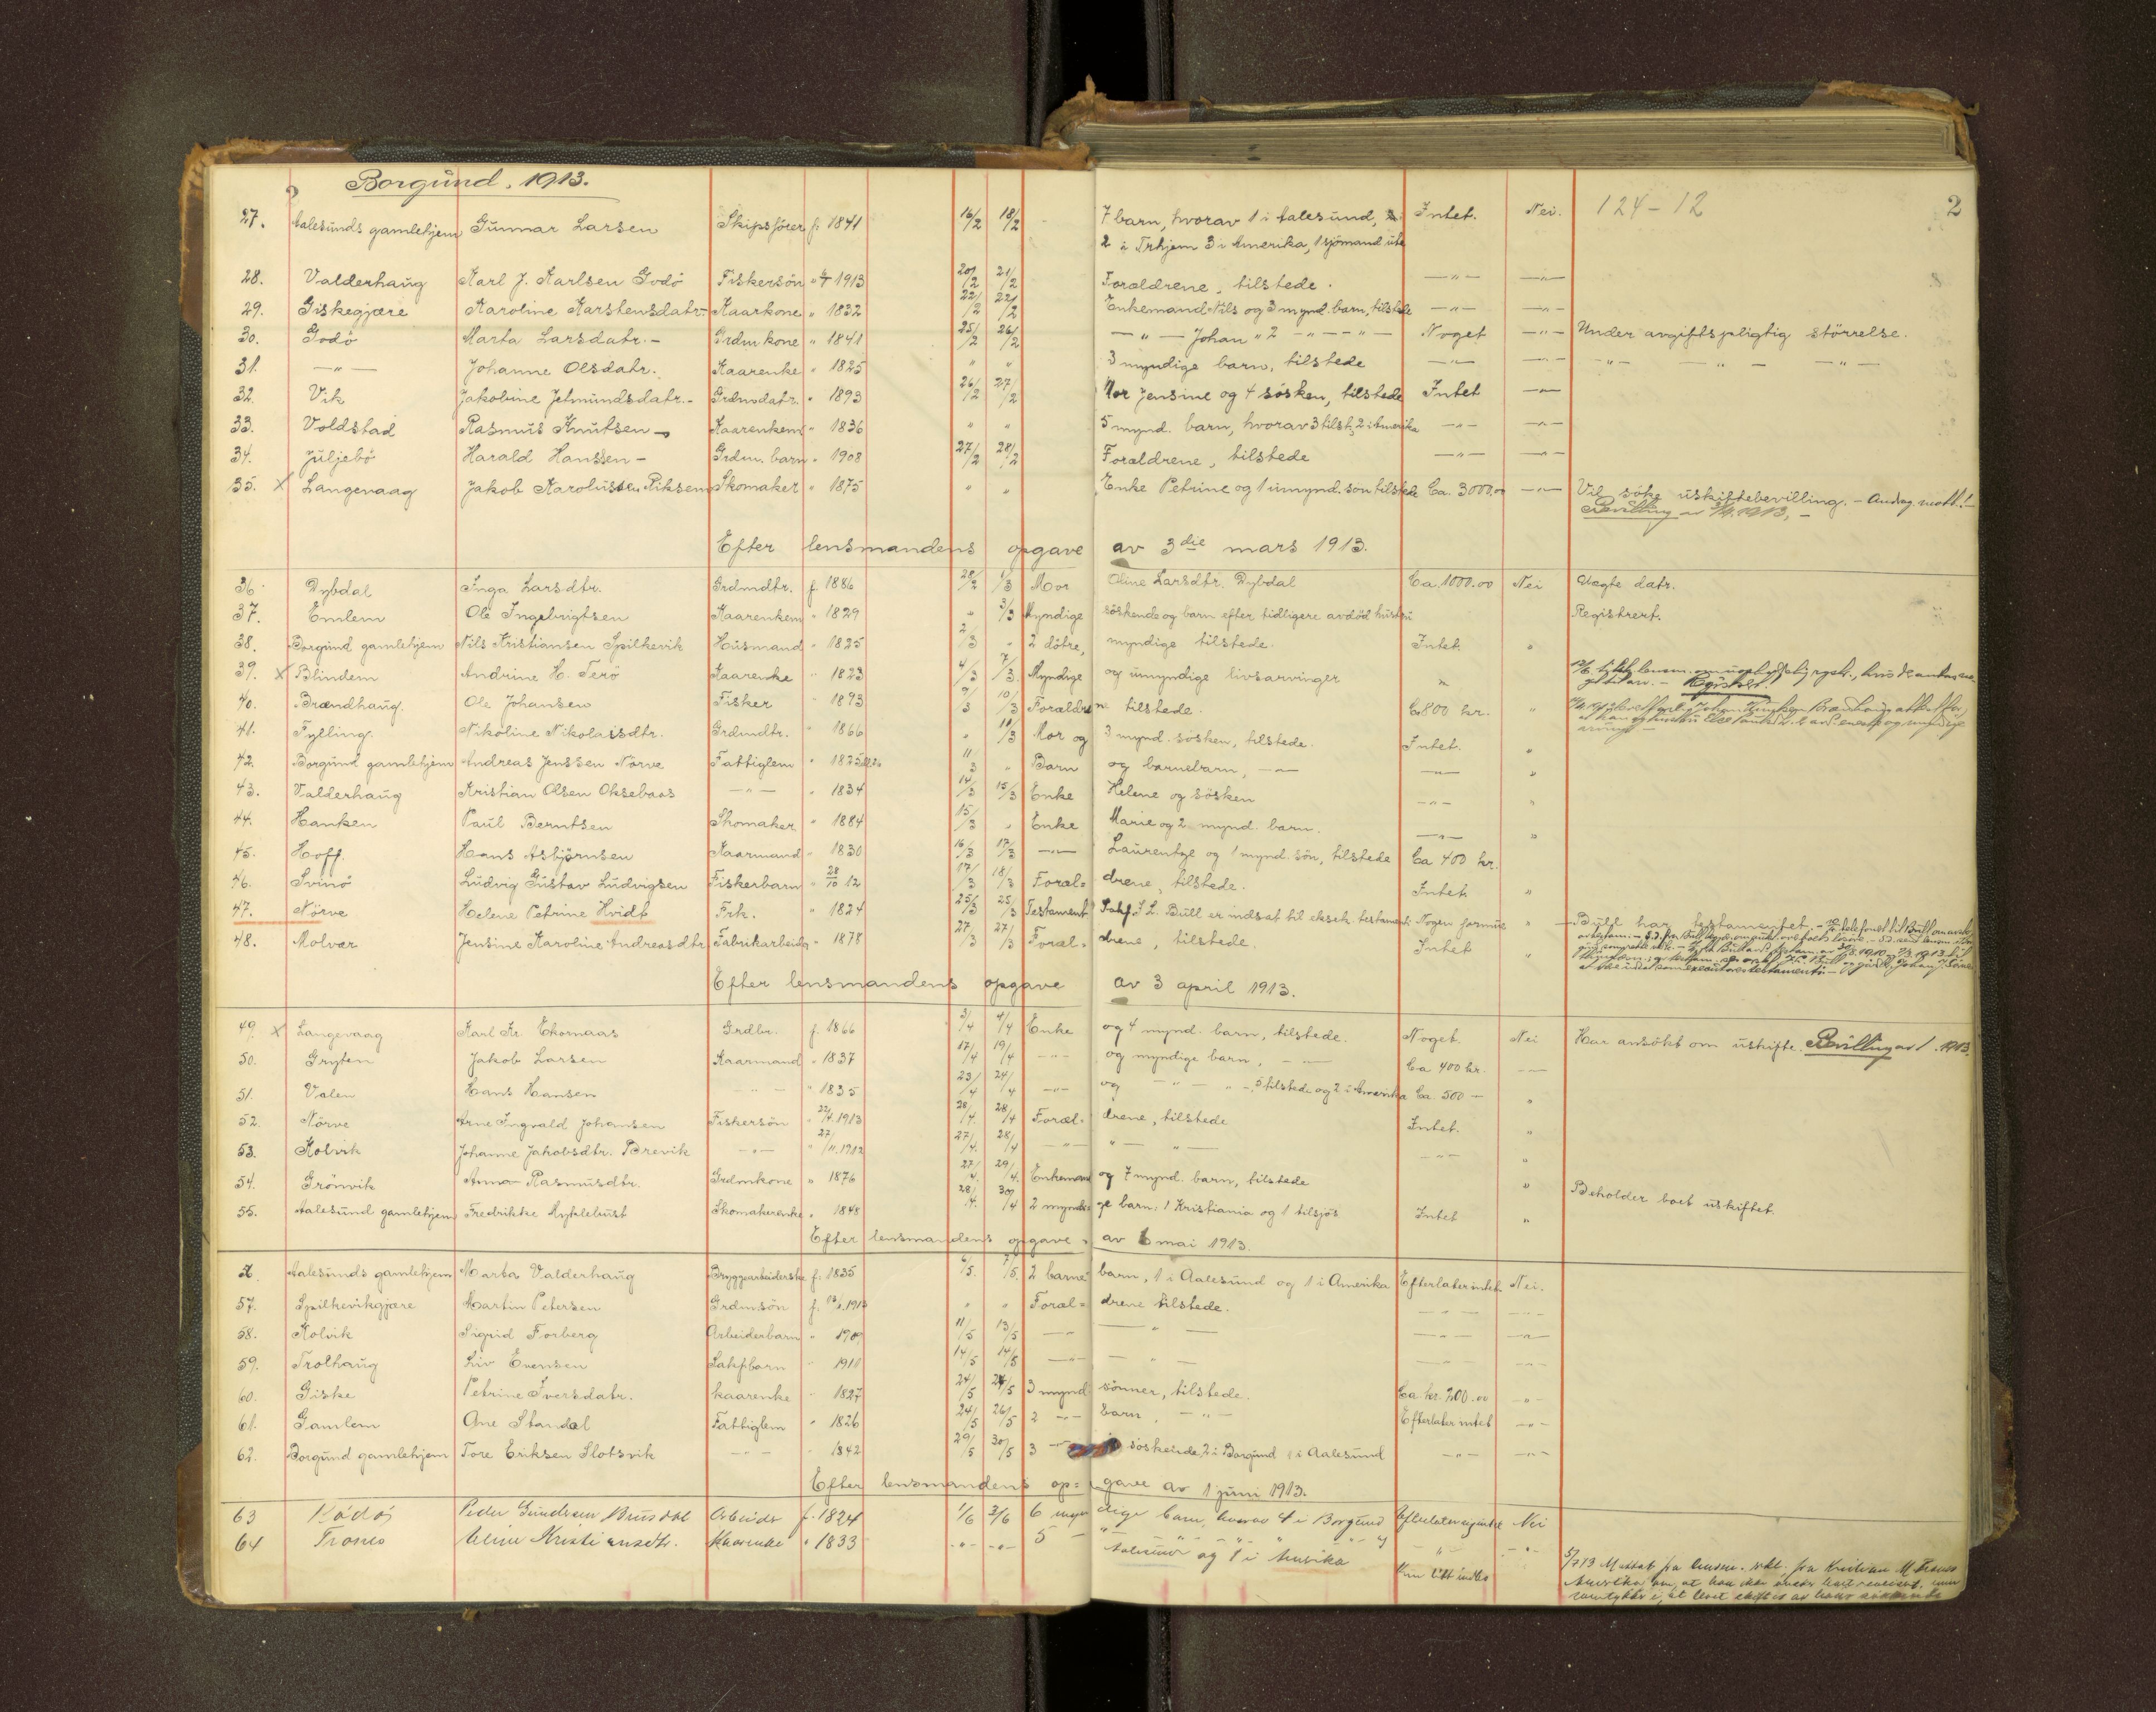 Borgund. 1913.
124-12 2
27. Aalesunds gamlehjem Gunnar Larsen Skipsfører f. 1841 16/2 18/2 7 barn, hvorav 1 i Aalesund, Intet. Nei.
2 i Trhjem 3 i Amerika, 1 sjömand ute
28. Valderhaug Karl J. Karlsen Godö Fiskersön " 1913 20/2 21/2 Forældrene, tilstede. —"— —"—
29. Giskegjære Karoline Karstensdatr. Kaarkone " 1832 22/2 22/2 Enkemand Nils og 3 mynd. barn, tilstede —"— —"—
30. Godö Marta Larsdatr. - Grdm kone " 1841 25/2 26/2 —"— Johan " 2 —"— —"— Noget —"— Under avgiftspligtig störrelse.
31. —"— Johanne Olsdatr. Kaarenke " 1825 " " 3 myndige barn, tilstede —"— —"— "— "— —"—
32. Vik Jakobine Jetmundsdatr. - Grdmdatr. " 1893 26/2 27/2 Mor Jensine og 4 sösken, tilstede Intet —"—
33. Voldstad Rasmus Knutsen - Kaarenkem " 1836 " " 5 mynd. barn, hvorav 3 tilst., 2 i Amerika —"— —"—
34. Juljebö Harald Hanssen - Grdm. barn " 1908 27/2 28/2 Forældrene, tilstede —"— —"—
35. x Langevaag Jakob Karolussen Riksem Skomaker " 1875 " " Enke Petrine og 1 umynd. sön tilstede Ca. 3000.00 —"— Vil söke uskiftebevilling. - Andrag. mott.! -
Bevilling av 1913, -
Efter lensmandens opgave av 3die mars 1913.
36. Dybdal Inga Larsdtr. Grdmdtr. f. 1886 28/2 1/3 Mor Oline Larsdtr. Dybdal Ca. 1000.00 Nei Uegte datr.
37. Emlem Ole Ingebrigtsen Kaarenkem " 1829 " 3/3 Myndige söskende og barn efter tidligere avdöd hustru Registrert.
38. Borgund gamlehjem Nils Kristiansen Spilkevik Husmand " 1825 2/3 " 2 dötre, myndige tilstede. Intet. "
39. x Blindem Andrine H. Terö Kaarenke " 1823 4/3 7/3 Myndige og umyndige livsarvinger "
Registr.
40. Brændhaug. Ole Johansen Fisker " 1893 9/3 10/3 Forældrene tilstede. Ca 800 kr. "
41. Fylling. Nikoline Nikolaisdtr. Grdmdtr. " 1866 " 11/3 Mor og 3 mynd. sösken, tilstede. Intet. "
42. Borgund gamlehjem Andreas Jenssen Nörve Fattiglem " 1825 11/3 " Barn og barnebarn, —"— —"— "
43. Valderhaug Kristian Olsen Oksebaas —"— " 1834 14/3 15/3 Enke Helene og sösken —"— "
44. Hanken Paul Berntsen Skomaker " 1884 15/3 " Enke Marie og 2 mynd. barn. —"— "
45. Hoff. Hans Asbjörnsen Kaarmand " 1830 16/3 17/3 —"— Laurentze og 1 mynd. sön, tilstede Ca 400 kr.
46. Svinö Ludvig Gustav Ludvigsen Fiskerbarn " 28/10 12 17/3 18/3 Foræl= drene, tilstede. Intet "
47. Nörve Helene Petrine Hvidt Frk. " 1824 25/3 25/3 Testament Sakf. J. L. Bull er indsat til eksek. testamenti Nogen formue " - Bull har testamentet. -
48. Molvær Jensine Karoline Andreasdtr. Fabrikarbeider " 1878 27/3 27/3 Foræl= drene, tilstede. Intet "
Efter lensmandens opgave av 3 april 1913.
49. x Langevaag Karl Kr. Ekornaas Grdbr. f. 1866 3/4 4/4 Enke og 4 mynd. barn, tilstede. Noget. Nei Har ansökt om uskifte. Bevilling av 1913.
50. Gryten Jakob Larsen Kaarmand " 1837 17/4 19/4 —"— og myndige barn, —"— Ca 400 kr. —"—
51. Valen Hans Hansen —"— " 1835 23/4 24/4 —"— og —"— "—, 5 tilstede og 2 i Amerika Ca. 500 — "
52. Nörve Arne Ingvald Johansen Fiskersön " 22/4. 1913 28/4 28/4 Foræl= drene, tilstede Intet. "
53. Kolvik Johanne Jakobsdtr. Brevik —"— " 27/11. 1912 27/4 28/4 —"— "— "— —"— "
54. Grönvik Anna Rasmusdtr. Grdmkone " 1876 27/4 29/4 Enkemand og 7 mynd. barn, tilstede " Beholder boet uskiftet.
55. Aalesund gamlehjem Fredrikke Myklebust Skomakerenke " 1848 28/4 30/4 2 myndi= ge barn: 1 Kristiania og 1 tilsjös Intet "
Efter lensmandens opgave av 6 mai 1913.
56. Aalesunds gamlehjem Marta Valderhaug Bryggearbeiderske f. 1835 6/5. 7/5. 2 barne= barn, 1 i Aalesund og 1 i Amerika Efterlater intet Nei.
57. Spilkevikgjære Martin Petersen Grdmsön f. 1913 " " Foræl= drene tilstede. —"— —"—
58. Kolvik Sigrid Forberg Arbeiderbarn " 1909 11/5 13/5 —"— —"— —"— —"—
59. Trolhaug Liv Evensen Sakfbarn " 1910 14/5 14/5 —"— —"— —"— —"—
60. Giske Petrine Iversdatr. kaarenke " 1827 24/5 24/5 3 mynd sönner, tilstede. Ca. kr. 200.00 —"—
61. Gamlem Ane Standal Fattiglem " 1826 24/5 26/5 2 —"— barn, —"— Efterlater intet —"—
62. Borgund gamlehjem Tore Eriksen Slotsvik —"— " 1842 29/5 30/5 3 —"— söskende, 2 i Borgund 1 i Aalesund —"— —"—
Efter lensmandens op= gave av 1 juni 1913.
63 Peder Arbeider f. 1824 1/6 2/6 6 myn dige barn, hvorav 4 i Borgund Nei
64 Kaarenke " 1833 —"— —"— 5 — "
Aalesund og 1 i Amerika